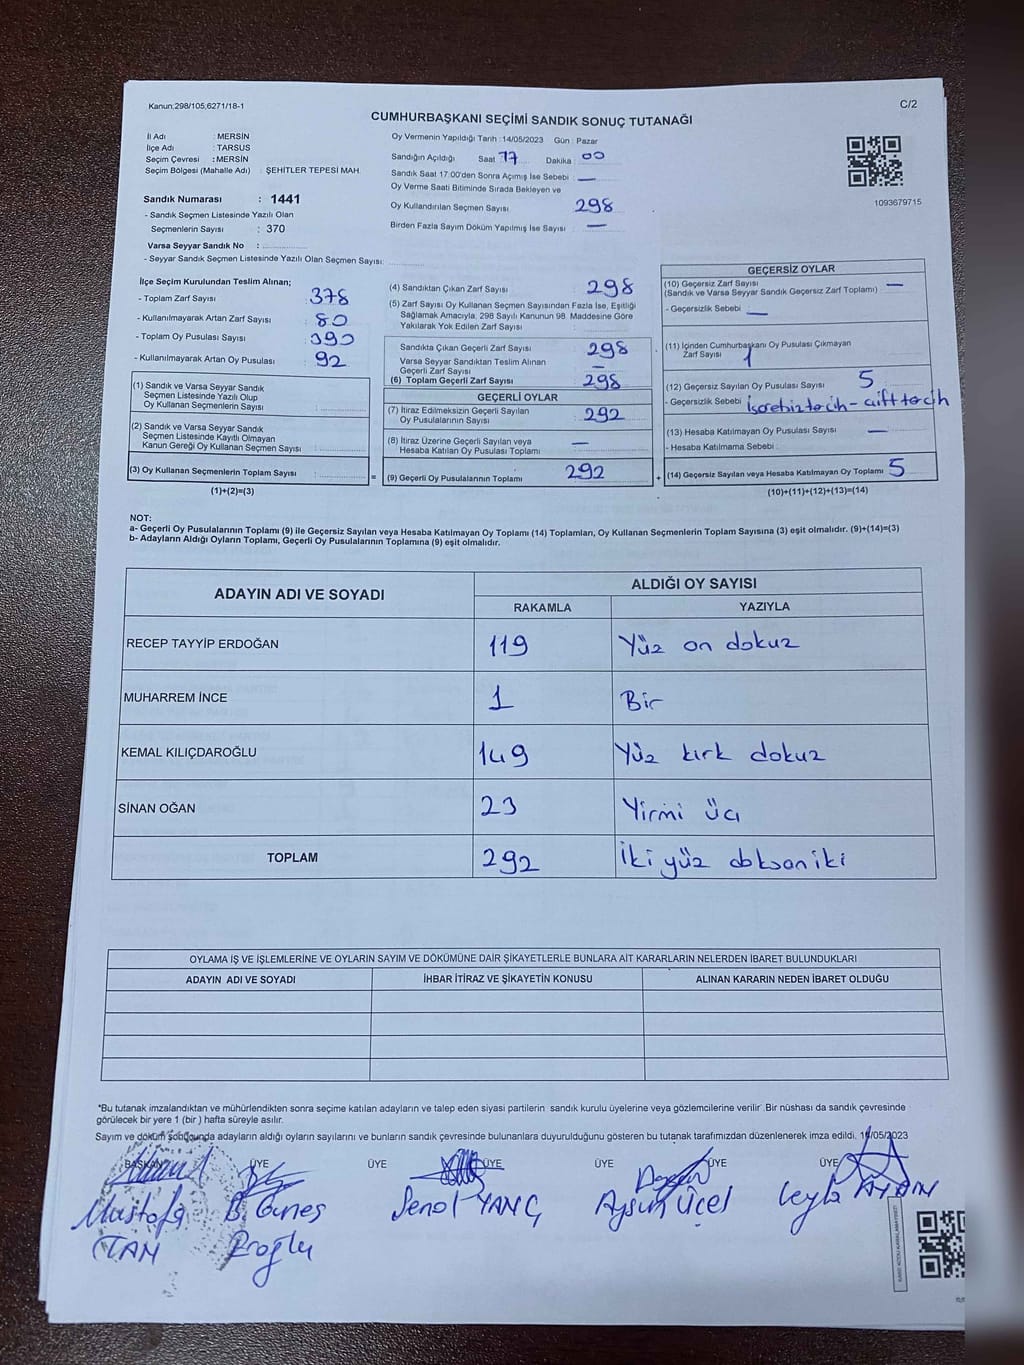 Kanun:298/105,6271/18-1
C/2
CUMHURBAŞKANI SEÇİMİ SANDIK SONUÇ TUTANAĞI
İl Adı : MERSİN
İlçe Adı : TARSUS
Seçim Çevresi : MERSİN
Seçim Bölgesi (Mahalle Adı) : ŞEHİTLER TEPESİ MAH.
Sandık Numarası : 1441
- Sandık Seçmen Listesinde Yazılı Olan
Seçmenlerin Sayısı : 370
Varsa Seyyar Sandık No :
- Seyyar Sandık Seçmen Listesinde Yazılı Olan Seçmen Sayısı:
Oy Vermenin Yapıldığı Tarih :14/05/2023 Gün : Pazar
Sandığın Açıldığı Saat 17 Dakika 00
Sandık Saat 17:00'den Sonra Açılmış İse Sebebi : —
Oy Verme Saati Bitiminde Sırada Bekleyen ve
Oy Kullandırılan Seçmen Sayısı 298
Birden Fazla Sayım Döküm Yapılmış İse Sayısı : —
1093679715
İlçe Seçim Kurulundan Teslim Alınan;
- Toplam Zarf Sayısı : 378
- Kullanılmayarak Artan Zarf Sayısı : 80
- Toplam Oy Pusulası Sayısı : 390
- Kullanılmayarak Artan Oy Pusulası : 92
(1) Sandık ve Varsa Seyyar Sandık
Seçmen Listesinde Yazılı Olup
Oy Kullanan Seçmenlerin Sayısı :
(2) Sandık ve Varsa Seyyar Sandık
Seçmen Listesinde Kayıtlı Olmayan
Kanun Gereği Oy Kullanan Seçmen Sayısı :
(3) Oy Kullanan Seçmenlerin Toplam Sayısı : =
(1)+(2)=(3)
(4) Sandıktan Çıkan Zarf Sayısı : 298
(5) Zarf Sayısı Oy Kullanan Seçmen Sayısından Fazla İse, Eşitliği
Sağlamak Amacıyla, 298 Sayılı Kanunun 98. Maddesine Göre
Yakılarak Yok Edilen Zarf Sayısı :
Sandıkta Çıkan Geçerli Zarf Sayısı : 298
Varsa Seyyar Sandıktan Teslim Alınan
Geçerli Zarf Sayısı : —
(6) Toplam Geçerli Zarf Sayısı : 298
GEÇERLİ OYLAR
(7) İtiraz Edilmeksizin Geçerli Sayılan
Oy Pusulalarının Sayısı : 292
(8) İtiraz Üzerine Geçerli Sayılan veya
Hesaba Katılan Oy Pusulası Toplamı : —
(9) Geçerli Oy Pusulalarının Toplamı : 292 +
GEÇERSİZ OYLAR
(10) Geçersiz Zarf Sayısı : —
(Sandık ve Varsa Seyyar Sandık Geçersiz Zarf Toplamı)
- Geçersizlik Sebebi : —
(11) İçinden Cumhurbaşkanı Oy Pusulası Çıkmayan
Zarf Sayısı : 1
(12) Geçersiz Sayılan Oy Pusulası Sayısı : 5
- Geçersizlik Sebebi : İşaretsiz tercih - çift tercih
(13) Hesaba Katılmayan Oy Pusulası Sayısı : —
- Hesaba Katılmama Sebebi :
(14) Geçersiz Sayılan veya Hesaba Katılmayan Oy Toplamı : 5
(10)+(11)+(12)+(13)=(14)
NOT:
a- Geçerli Oy Pusulalarının Toplamı (9) ile Geçersiz Sayılan veya Hesaba Katılmayan Oy Toplamı (14) Toplamları, Oy Kullanan Seçmenlerin Toplam Sayısına (3) eşit olmalıdır. (9)+(14)=(3)
b- Adayların Aldığı Oyların Toplamı, Geçerli Oy Pusulalarının Toplamına (9) eşit olmalıdır.
ADAYIN ADI VE SOYADI
ALDIĞI OY SAYISI
RAKAMLA YAZIYLA
RECEP TAYYİP ERDOĞAN 119 Yüz on dokuz
MUHARREM İNCE 1 Bir
KEMAL KILIÇDAROĞLU 149 Yüz kırk dokuz
SİNAN OĞAN 23 Yirmi üç
TOPLAM 292 İki yüz doksan iki
OYLAMA İŞ VE İŞLEMLERİNE VE OYLARIN SAYIM VE DÖKÜMÜNE DAİR ŞİKAYETLERLE BUNLARA AİT KARARLARIN NELERDEN İBARET BULUNDUKLARI
ADAYIN ADI VE SOYADI İHBAR İTİRAZ VE ŞİKAYETİN KONUSU ALINAN KARARIN NEDEN İBARET OLDUĞU
*Bu tutanak imzalandıktan ve mühürlendikten sonra seçime katılan adayların ve talep eden siyasi partilerin sandık kurulu üyelerine veya gözlemcilerine verilir. Bir nüshası da sandık çevresinde
görülecek bir yere 1 (bir ) hafta süreyle asılır.
Sayım ve döküm sonucunda adayların aldığı oyların sayılarını ve bunların sandık çevresinde bulunanlara duyurulduğunu gösteren bu tutanak tarafımızdan düzenlenerek imza edildi. 14/05/2023
BAŞKAN ÜYE ÜYE ÜYE ÜYE ÜYE ÜYE
Mustafa TAN
B. Güneş Eroğlu
Şenol YANÇ
Aysun Üçel
Leyla AYDIN